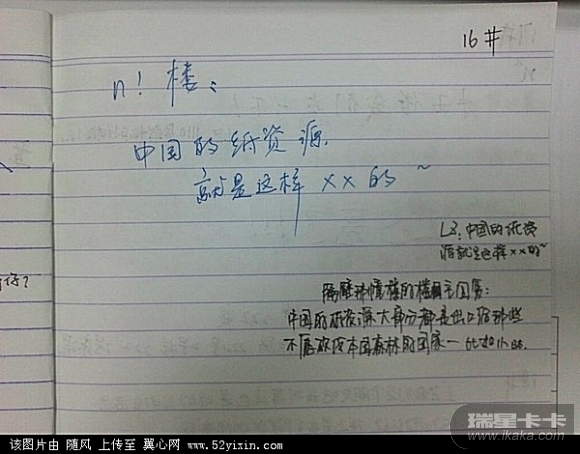 16#
n! 楼:
中国的纸资源.
就是这样 xx 的 ~
L3: 中国的纸资
源就是这样xx的~
隔壁那幢楼的楼主回复:
中国的纸资源大部分都是出口给那些
不愿砍伐本国森林的国家 — 比如小日本.
瑞星卡卡
www.ikaka.com
该图片由 随风 上传至 翼心网 www.52yixin.com